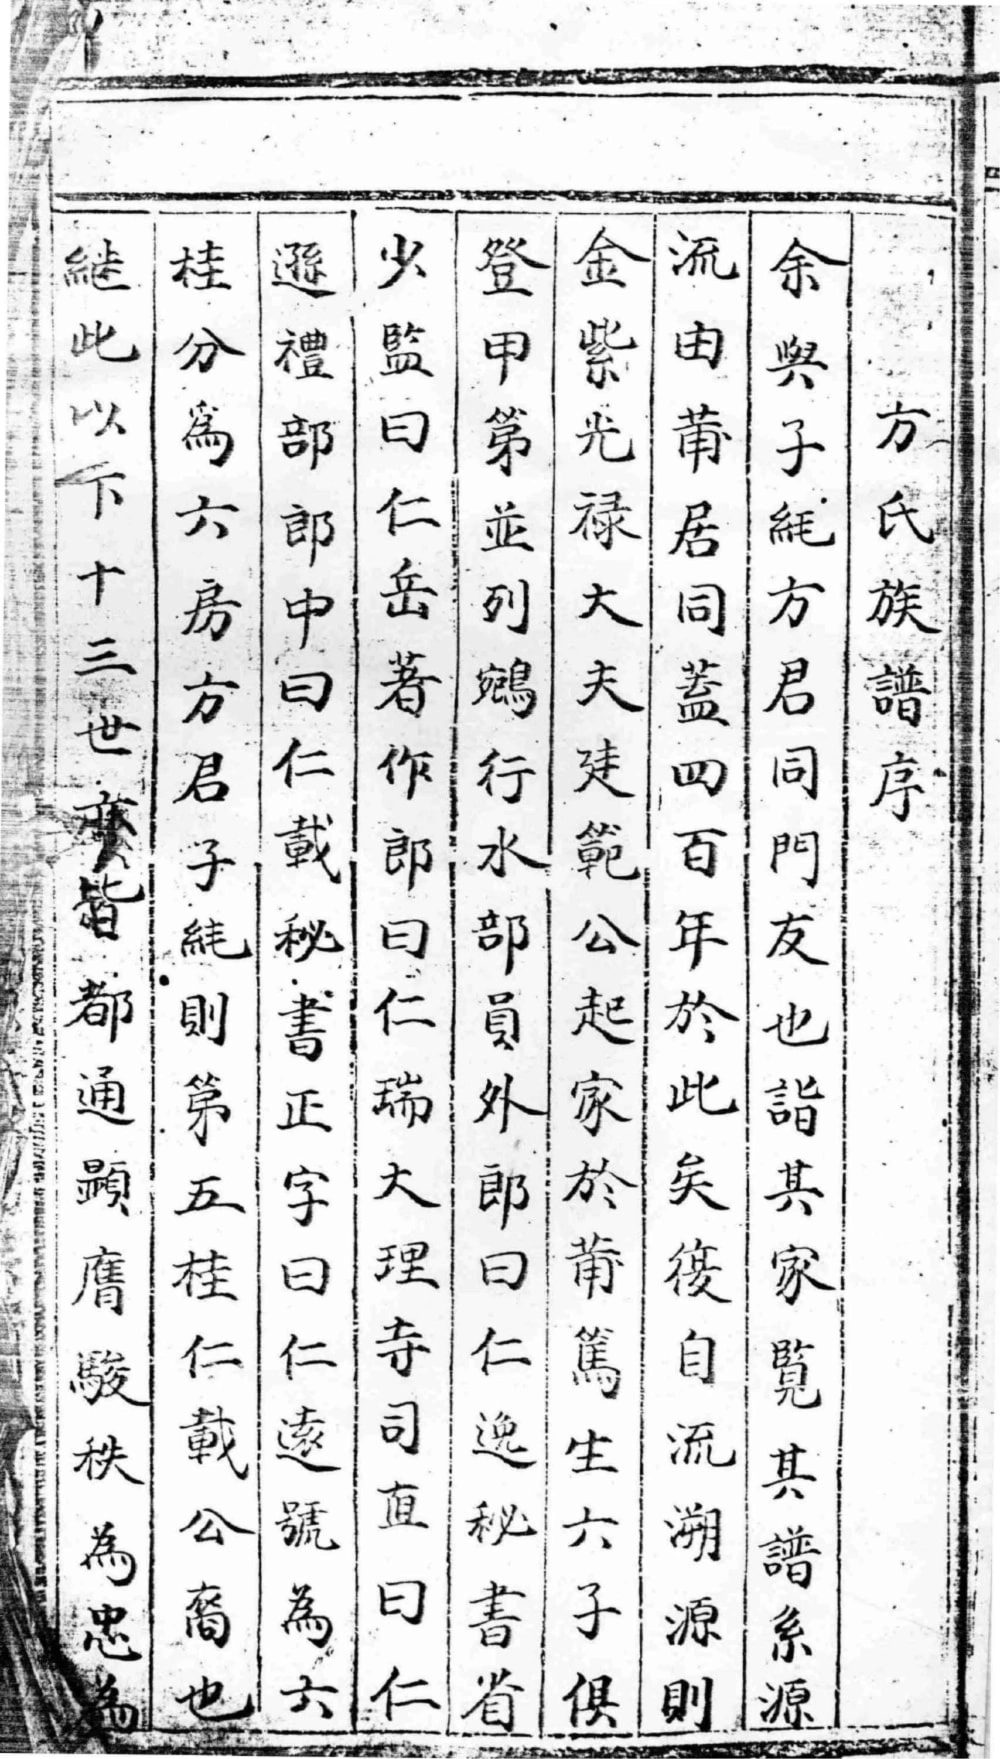 方氏族譜序
余與子𦀌方君同門友也詣其家覽其譜系源
流由莆居同蓋四百年於此矣後自流溯源則
金紫光禄大夫廷範公起家於莆篤生六子俱
登甲第並列鵷行水部員外郎曰仁逸秘書省
少監曰仁岳著作郎曰仁瑞大理寺司直曰仁
遜禮部郎中曰仁載秘書正字曰仁遠號為六
桂分爲六房方君子𦀌則第五桂仁載公裔也
継此以下十三世皆都通顕膺駿秩為忠為